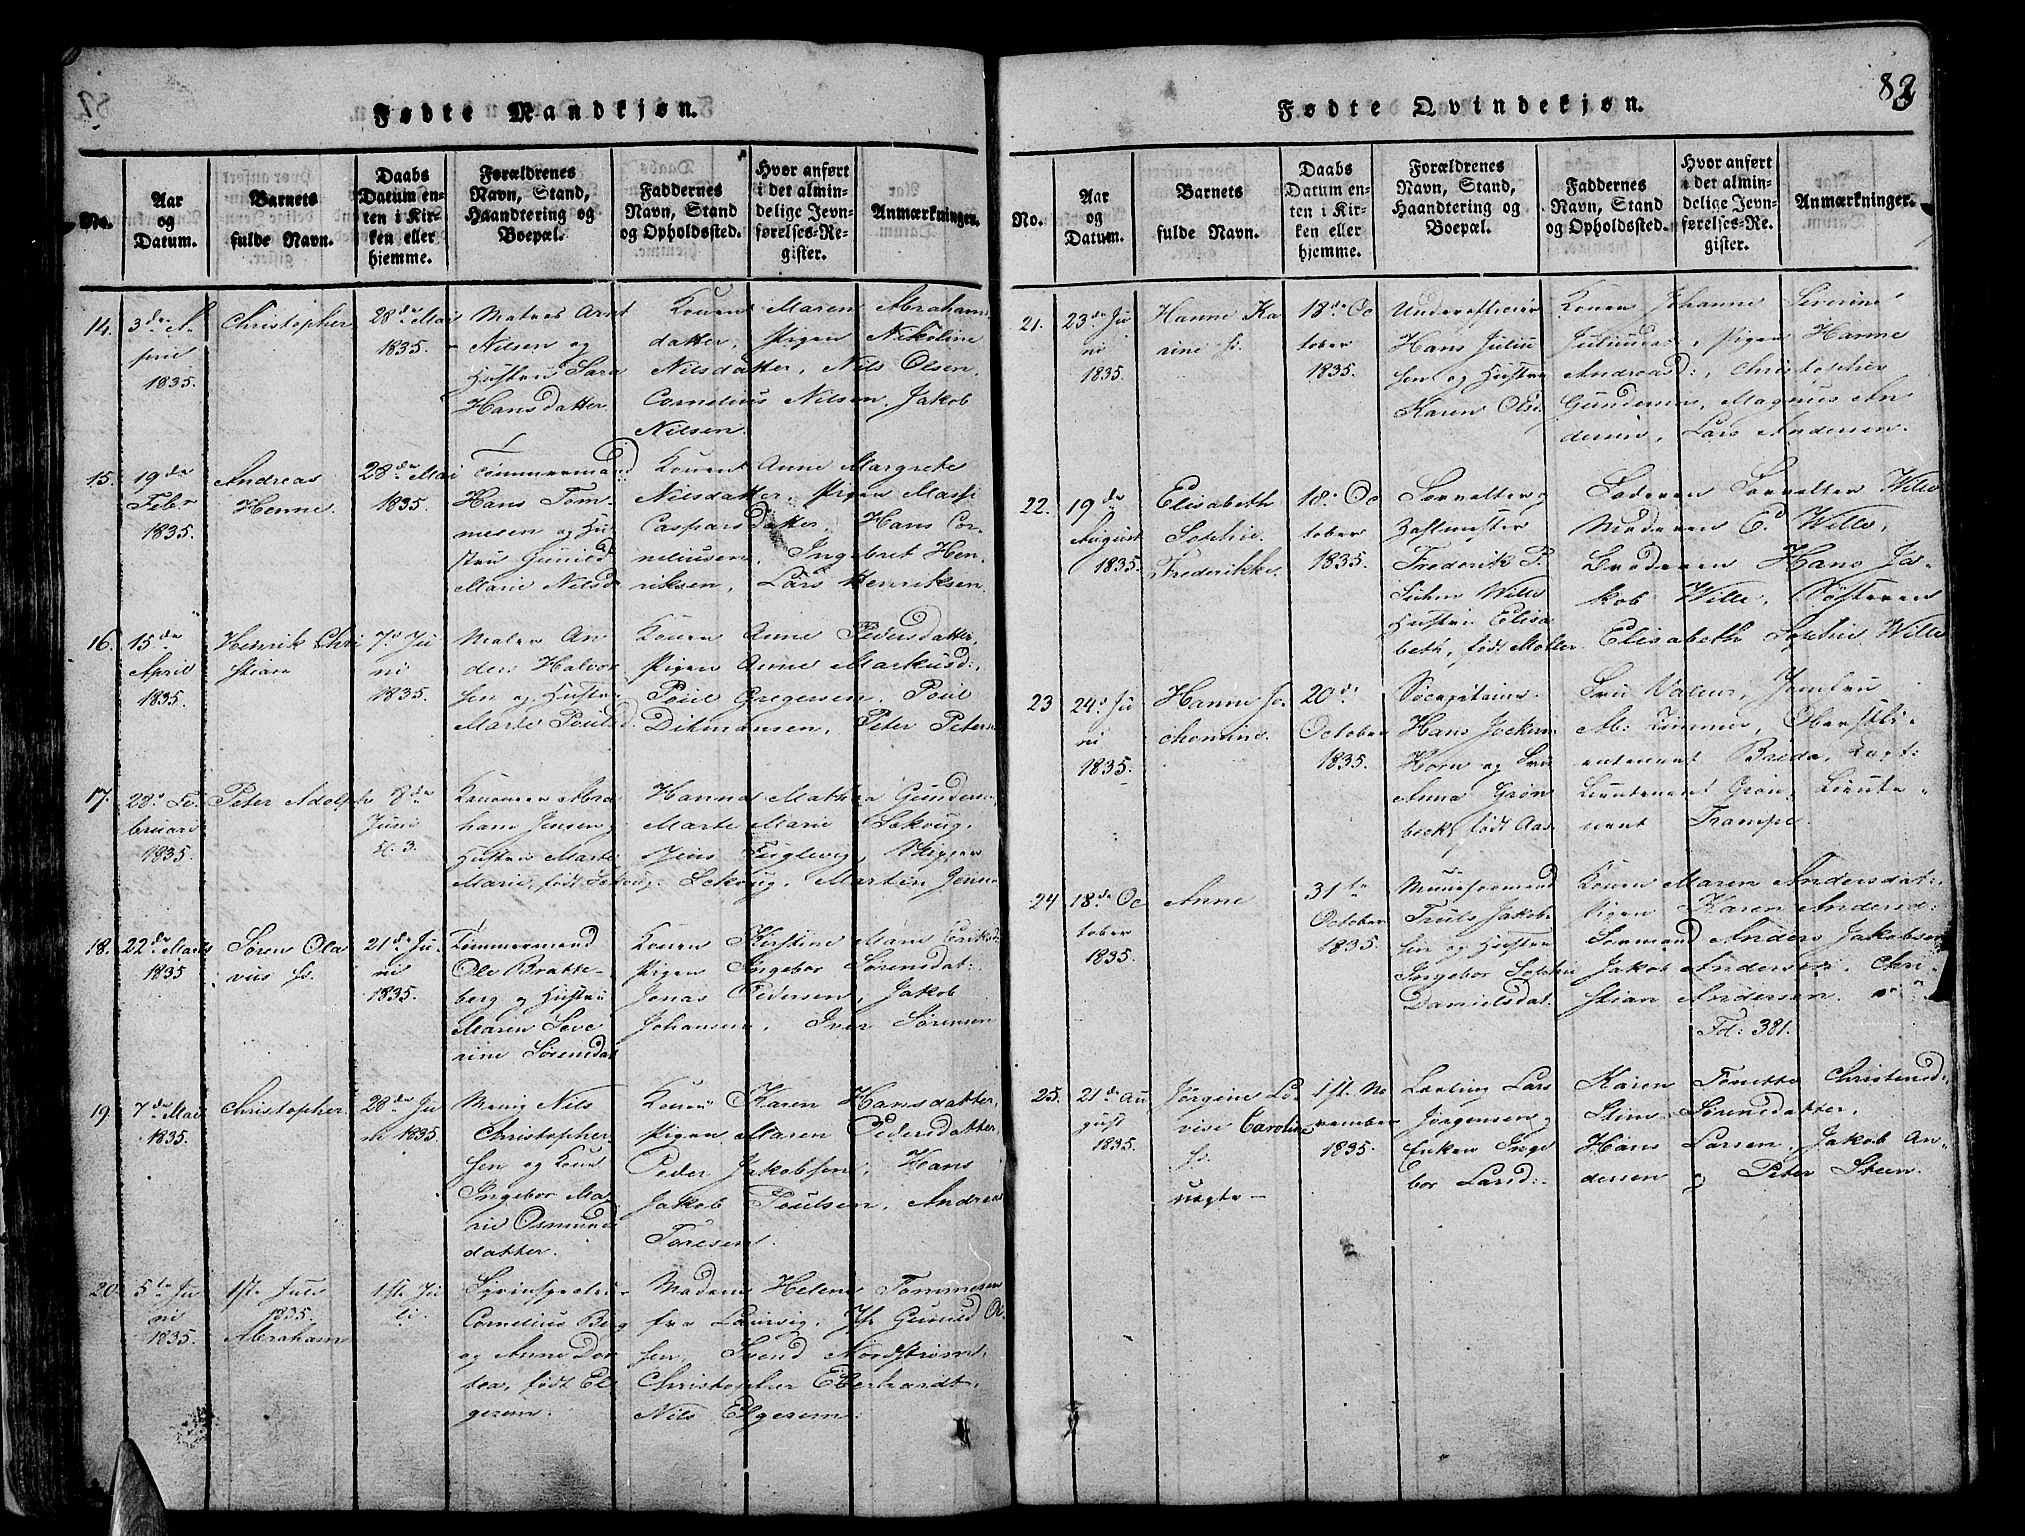 Fødte Mandkjøn.
No.
Aar
og
Datum.
Barnets
fulde Navn.
Daabs
Datum en-
ten i Kir-
ken eller
hjemme.
Forældrenes
Navn, Stand,
Haandtering og
Boepæl.
Faddernes
Navn, Stand
og Opholdssted.
Hvor anført
i det almin-
delige Jevn-
førelses-Re-
gister.
Anmærkninger.
14.
3de A
pril
1835.
Christopher
28de Mai
1835.
Matros Arnt
Nilsen og
Hustru Sara
Hansdatter
Konen Maren Abraham
datter, Pigen Nikoline
Nilsdatter, Nils Olsen,
Cornelius Nilsen, Jakob
Nilsen.
15.
19de
Febr
1835.
Andreas
Henne
28de Mai
1835.
Tømmermand
Hans Tom-
mesen og Hu
stru Gunild
Marie Nilsd
Konen Anne Margrete
Nilsdatter, Pigen Massi
Caspersdatter, Hans Cor-
neliusen, Ingebret Hen-
riksen, Lars Henriksen
16.
15de
April
1835.
Henrik Chri
stian
7de Ju
ni
1835.
Maler An
ders Halvor
sen og Hustru
Marte Poulsd
Konen Anne Pedersdatter,
Pigen Anne Markusd:,
Poul Gregersen, Poul
Ditmansen, Peter Peters
17.
28de Fe
bruari
1835.
Peter Adolph
8de
Juni
Konen Abra
ham Jensen
Hustru Marte
Marie, født Lekoug
Hanna Mathea Gunders
Marte Marie Lekoug,
Jens Fuglevig, Skipper
Lekoug, Martin Jens
18.
22de Marts
1835
Søren Ola
vus
21de Ju-
ni
1835.
Tømmermand
Ole Bratte-
berg og Hustru
Maren Seve
rine Sørensdat
Konen Kirstine Marie Eriksd:
Pigen Ingebor Sørensdat:
Jonas Pedersen, Jakob
Johansen, Iver Sørensen
19.
7de Mai
1835.
Christopher
28de Ju
ni 1835.
Nils
Christopher
sen og Kone
Ingebor Ma-
rie Osmunds
datter.
Konen Karen Hansdatter,
Pigen Maren Pedersdatter,
Peder Jakobsen, Hans
Jakob Poulsen, Andreas
Toresen.
20.
5te Ju
ni
1835.
1ste Juli
1835.
Abraham
1ste Ju
li.
Cornelius Berg
og Anne Dor
tea, født El
gerem.
Madam Helene Tommesen
fra Laurvig, Jfr Gunild Ol
sen, Svend Nordstrøm,
Christopher Eberhardt,
Nils Elgerem.
83
Fødte Qvindekjøn.
No.
Aar
og
Datum.
Barnets
fulde Navn.
Daabs
Datum en-
ten i Kir-
ken eller
hjemme.
Forældrenes
Navn, Stand,
Haandtering og
Boepæl.
Faddernes
Navn, Stand
og Opholdssted.
Hvor anført
i det almin-
delige Jevn-
førelses-Re-
gister.
Anmærkninger.
21.
23de Ju
ni
1835.
Hanne Ka
rine
18de Oc
tober
1835.
Underofficier
Hans Juliu
sen og Hustru
Karen Olsd.
Konen Johanne Severine
Juliusdat, Pigen Hanne
Andreasd:, Christopher
Gundersen, Magnus An
dersen, Lars Andersen.
22.
19de
August
1835.
Elisabeth
Sophie
Frederikke.
18de Oc
tober
1835.
Forvalter
Zahlmester
Frederik P.
Suhm Wille
Hustru Elisa
beth, født Møller.
Faderen Forvalter Wille
Moderen Ed Wille,
Broderen Hans Ja-
kob Wille, Søsteren
Elisabeth Sophie Wille
23
24de Ju
ni
1835.
Hanne Jo
chemine.
20de
October
1835.
Søecapitaine
Hans Jochem
Horn og Fru
Anna Grøn
beck, født Aas
Fru Valeur, Jomfru
M: Zimmer, Oberstli-
eutenant Breda,
Lieutenant Grøn, Lieute-
nant Trampe.
24
18de Oc
tober
1835.
Anne
31te
October
1835.
Truls Jakob
sen og Hustru
Ingebor Sophie
Danielsdat.
Konen Maren Andersdat:,
Pigen Karen Andersd:
Formand Anders Jakobsen
Jakob Andersen, Chri-
stian Andersen.
Fol: 381.
25.
21de Au
gust
1835.
Jørgine Lo
vise Caroline
uægte
1st No
vember
1835.
Lærling Lars
Jørgensen
Enken Inge
bor Larsd:
Karen Tonette Christensd:
Stine Sørensdatter,
Hans Larsen, Jakob An-
dersen og Peter Steen.